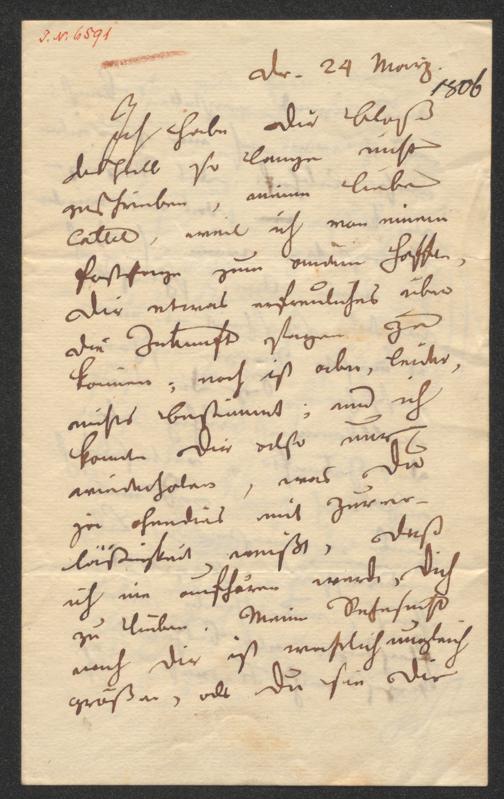 J. N. 6591
Dr. 24 März.
1806
Ich habe Dir bloß
deshalb so lange nicht
geschrieben, meine liebe
weil ich von einem
Posttage zum andern hoffte,
Dir etwas erfreuliches über
die Zukunft sagen zu
können; noch ist aber, leider,
nichts bestimmt; und ich
konnte Dir also nur
wiederholen, was Du
ja ohnedies mit zuver-
läßigkeit weißt, daß
ich nie aufhören werde, Dich
zu lieben. Meine Sehnsucht
nach Dir ist wahrlich ungleich
größer, als Du sie Dir